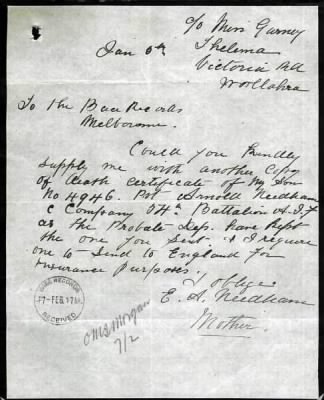 c/o Miss Gurney
Jan 6th
Thelema
Victoria Rd
Woollahra
To the Base Records
Melbourne.
Could you kindly
supply me with another Copy
of death certificate of my Son
No 4946. Pvt Arnold Needham
C Company Battalion A.I.F
as the Probate Dep. have kept
the one you sent & I require
one to send to England for
Insurance Purposes.
oblige
E. A. Needham
Mother.
BASE RECORDS
7-FEB.17
RECEIVED
Morgan
7/2